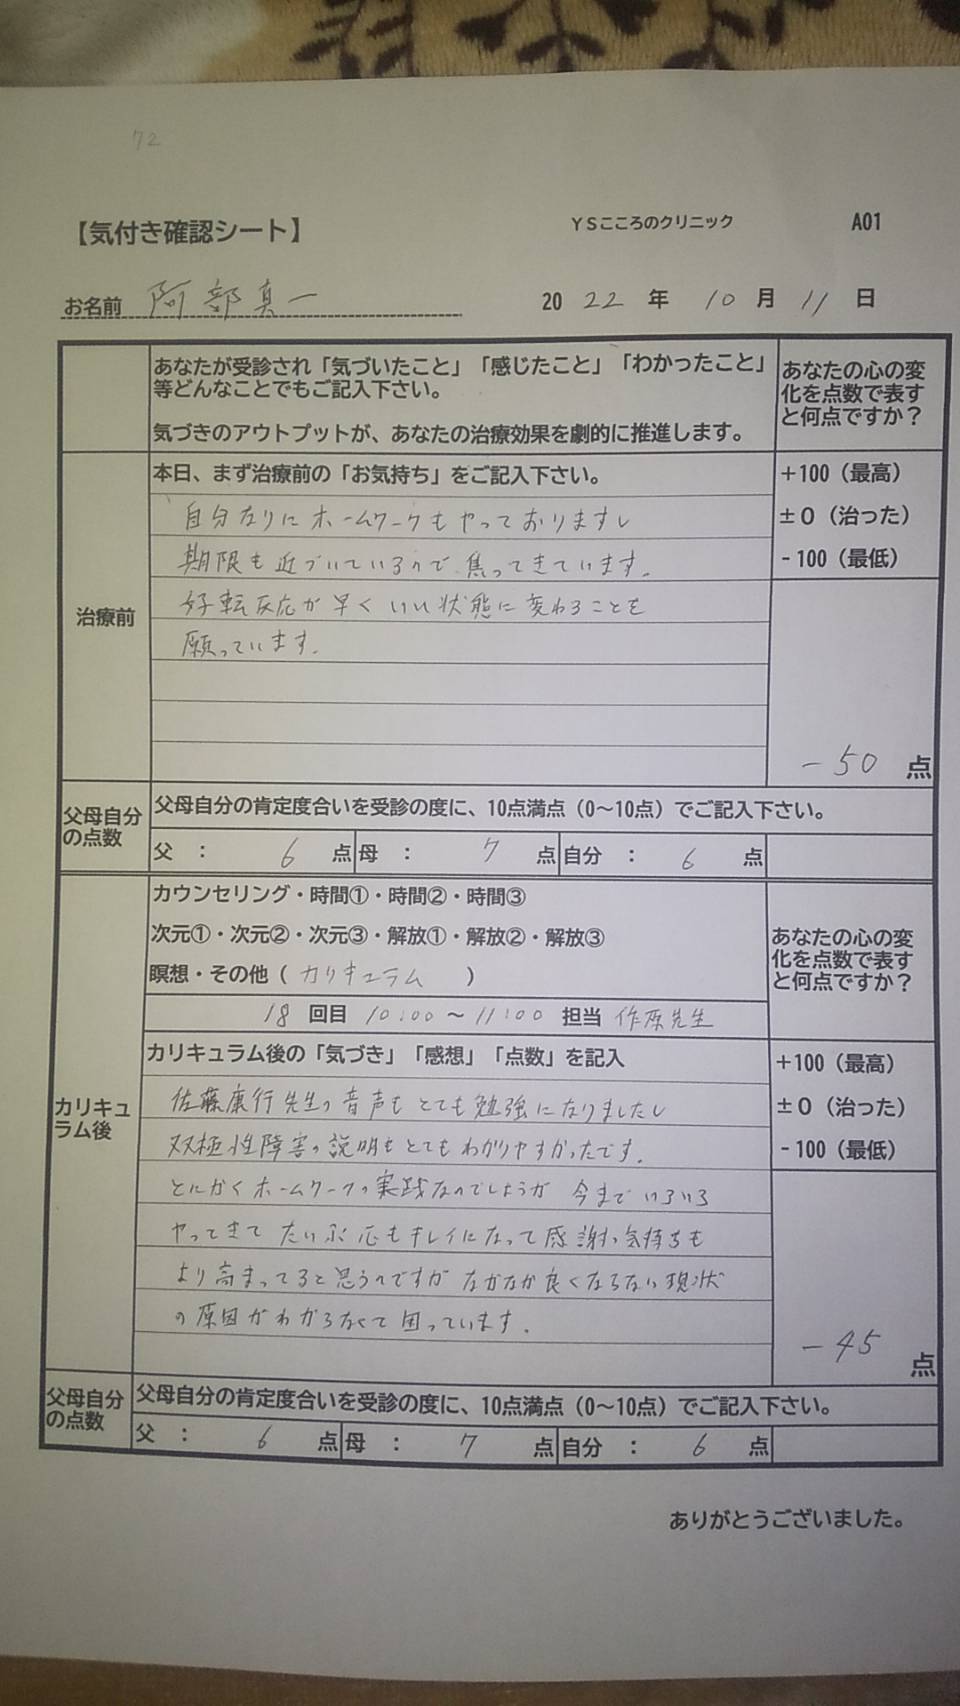 72
【気付き確認シート】 YSこころのクリニック A01
お名前 阿部真一 2022年10月11日
あなたが受診され「気づいたこと」「感じたこと」「わかったこと」
等どんなことでもご記入下さい。
気づきのアウトプットが、あなたの治療効果を劇的に推進します。
あなたの心の変
化を点数で表す
と何点ですか？
治療前
本日、まず治療前の「お気持ち」をご記入下さい。
自分なりにホームワークもやっておりますし
期限も近づいているので、焦ってきています。
好転反応が早くいい状態に変わることを
願っています。
+100（最高）
±0（治った）
-100（最低）
-50点
父母自分
の点数
父母自分の肯定度合いを受診の度に、10点満点（0～10点）でご記入下さい。
父：6点 母：7点 自分：6点
カリキュ
ラム後
カウンセリング・時間①・時間②・時間③
次元①・次元②・次元③・解放①・解放②・解放③
瞑想・その他（カリキュラム）
18回目 10:00～11:00 担当 作原先生
あなたの心の変
化を点数で表す
と何点ですか？
カリキュラム後の「気づき」「感想」「点数」を記入
佐藤康行先生の音声もとても勉強になりましたし
双極性障害の説明もとてもわかりやすかったです。
とにかくホームワークの実践なのでしょうが 今までいろいろ
やってきて だいぶ心もキレイになって感謝の気持ちも
より高まってると思うのですが なかなか良くならない現状
の原因がわからなくて困っています。
+100（最高）
±0（治った）
-100（最低）
-45点
父母自分
の点数
父母自分の肯定度合いを受診の度に、10点満点（0～10点）でご記入下さい。
父：6点 母：7点 自分：6点
ありがとうございました。